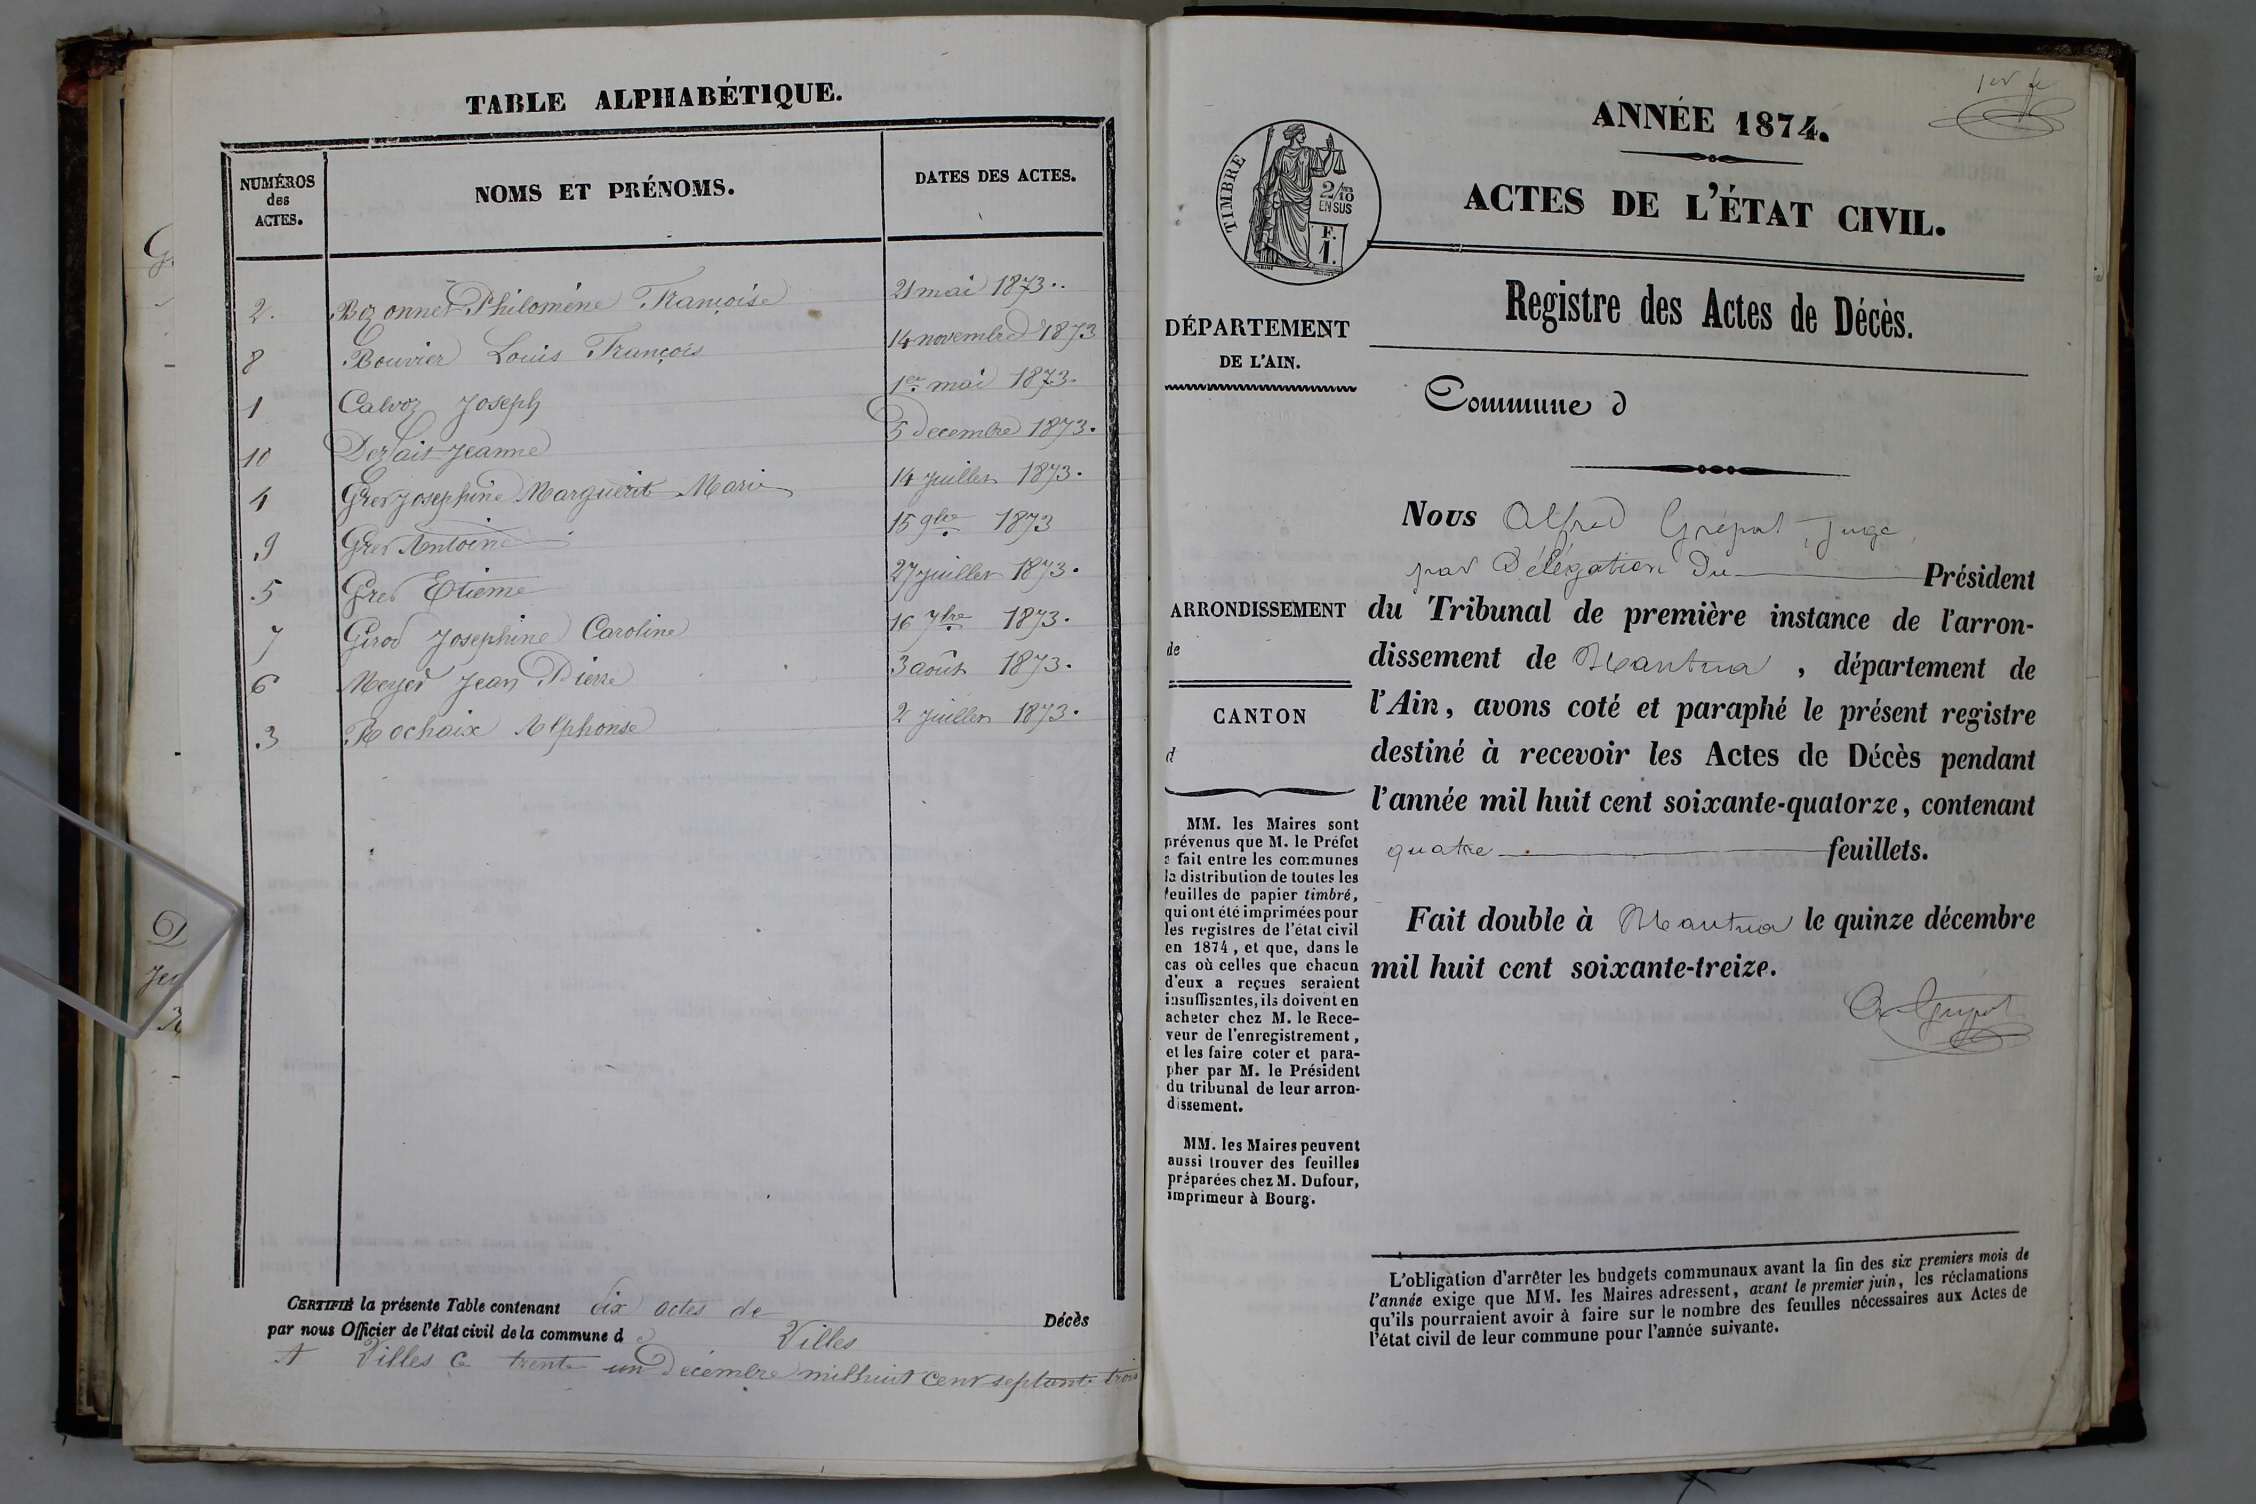 TABLE ALPHABÉTIQUE.
NUMÉROS des ACTES.
NOMS ET PRÉNOMS.
DATES DES ACTES.
2. Bozonnet Philomène Françoise 21 mai 1873..
8 Bouvier Louis François 14 novembre 1873
1 Calvoz Joseph 1er mai 1873.
10 Jeanne 5 decembre 1873.
4 Gres Josephine Marguerit Marie 14 juillet 1873.
9 Gres Antoine 15 9bre 1873
5 Gres Etienne 27 juillet 1873.
7 Girod Josephine Caroline 16 7bre 1873.
6 Meyer Jean Pierre 3 août 1873.
3 Rochaix Alphonse 2 juillet 1873.
CERTIFIÉ la présente Table contenant dix actes de Décès
par nous Officier de l'état civil de la commune d e Villes
A Villes ce trente un Décembre mil huit cent septante trois
1er fet
ANNÉE 1874.
ACTES DE L'ÉTAT CIVIL.
TIMBRE
2/10
EN SUS
F.
1.
Registre des Actes de Décès.
DÉPARTEMENT
DE L'AIN.
Commune d
Nous Alfred Grépat, Juge,
par Délégation du Président
du Tribunal de première instance de l'arron-
dissement de Nantua, département de
l'Ain, avons coté et paraphé le présent registre
destiné à recevoir les Actes de Décès pendant
l'année mil huit cent soixante-quatorze, contenant
quatre feuillets.
Fait double à Nantua le quinze décembre
mil huit cent soixante-treize.
ARRONDISSEMENT
de
CANTON
d
MM. les Maires sont
prévenus que M. le Préfet
a fait entre les communes
la distribution de toutes les
feuilles de papier timbré,
qui ont été imprimées pour
les registres de l'état civil
en 1874, et que, dans le
cas où celles que chacun
d'eux a reçues seraient
insuffisantes, ils doivent en
acheter chez M. le Rece-
veur de l'enregistrement,
et les faire coter et para-
pher par M. le Président
du tribunal de leur arron-
dissement.
MM. les Maires peuvent
aussi trouver des feuilles
préparées chez M. Dufour,
imprimeur à Bourg.
L'obligation d'arrêter les budgets communaux avant la fin des six premiers mois de
l'année exige que MM. les Maires adressent, avant le premier juin, les réclamations
qu'ils pourraient avoir à faire sur le nombre des feuilles nécessaires aux Actes de
l'état civil de leur commune pour l'année suivante.